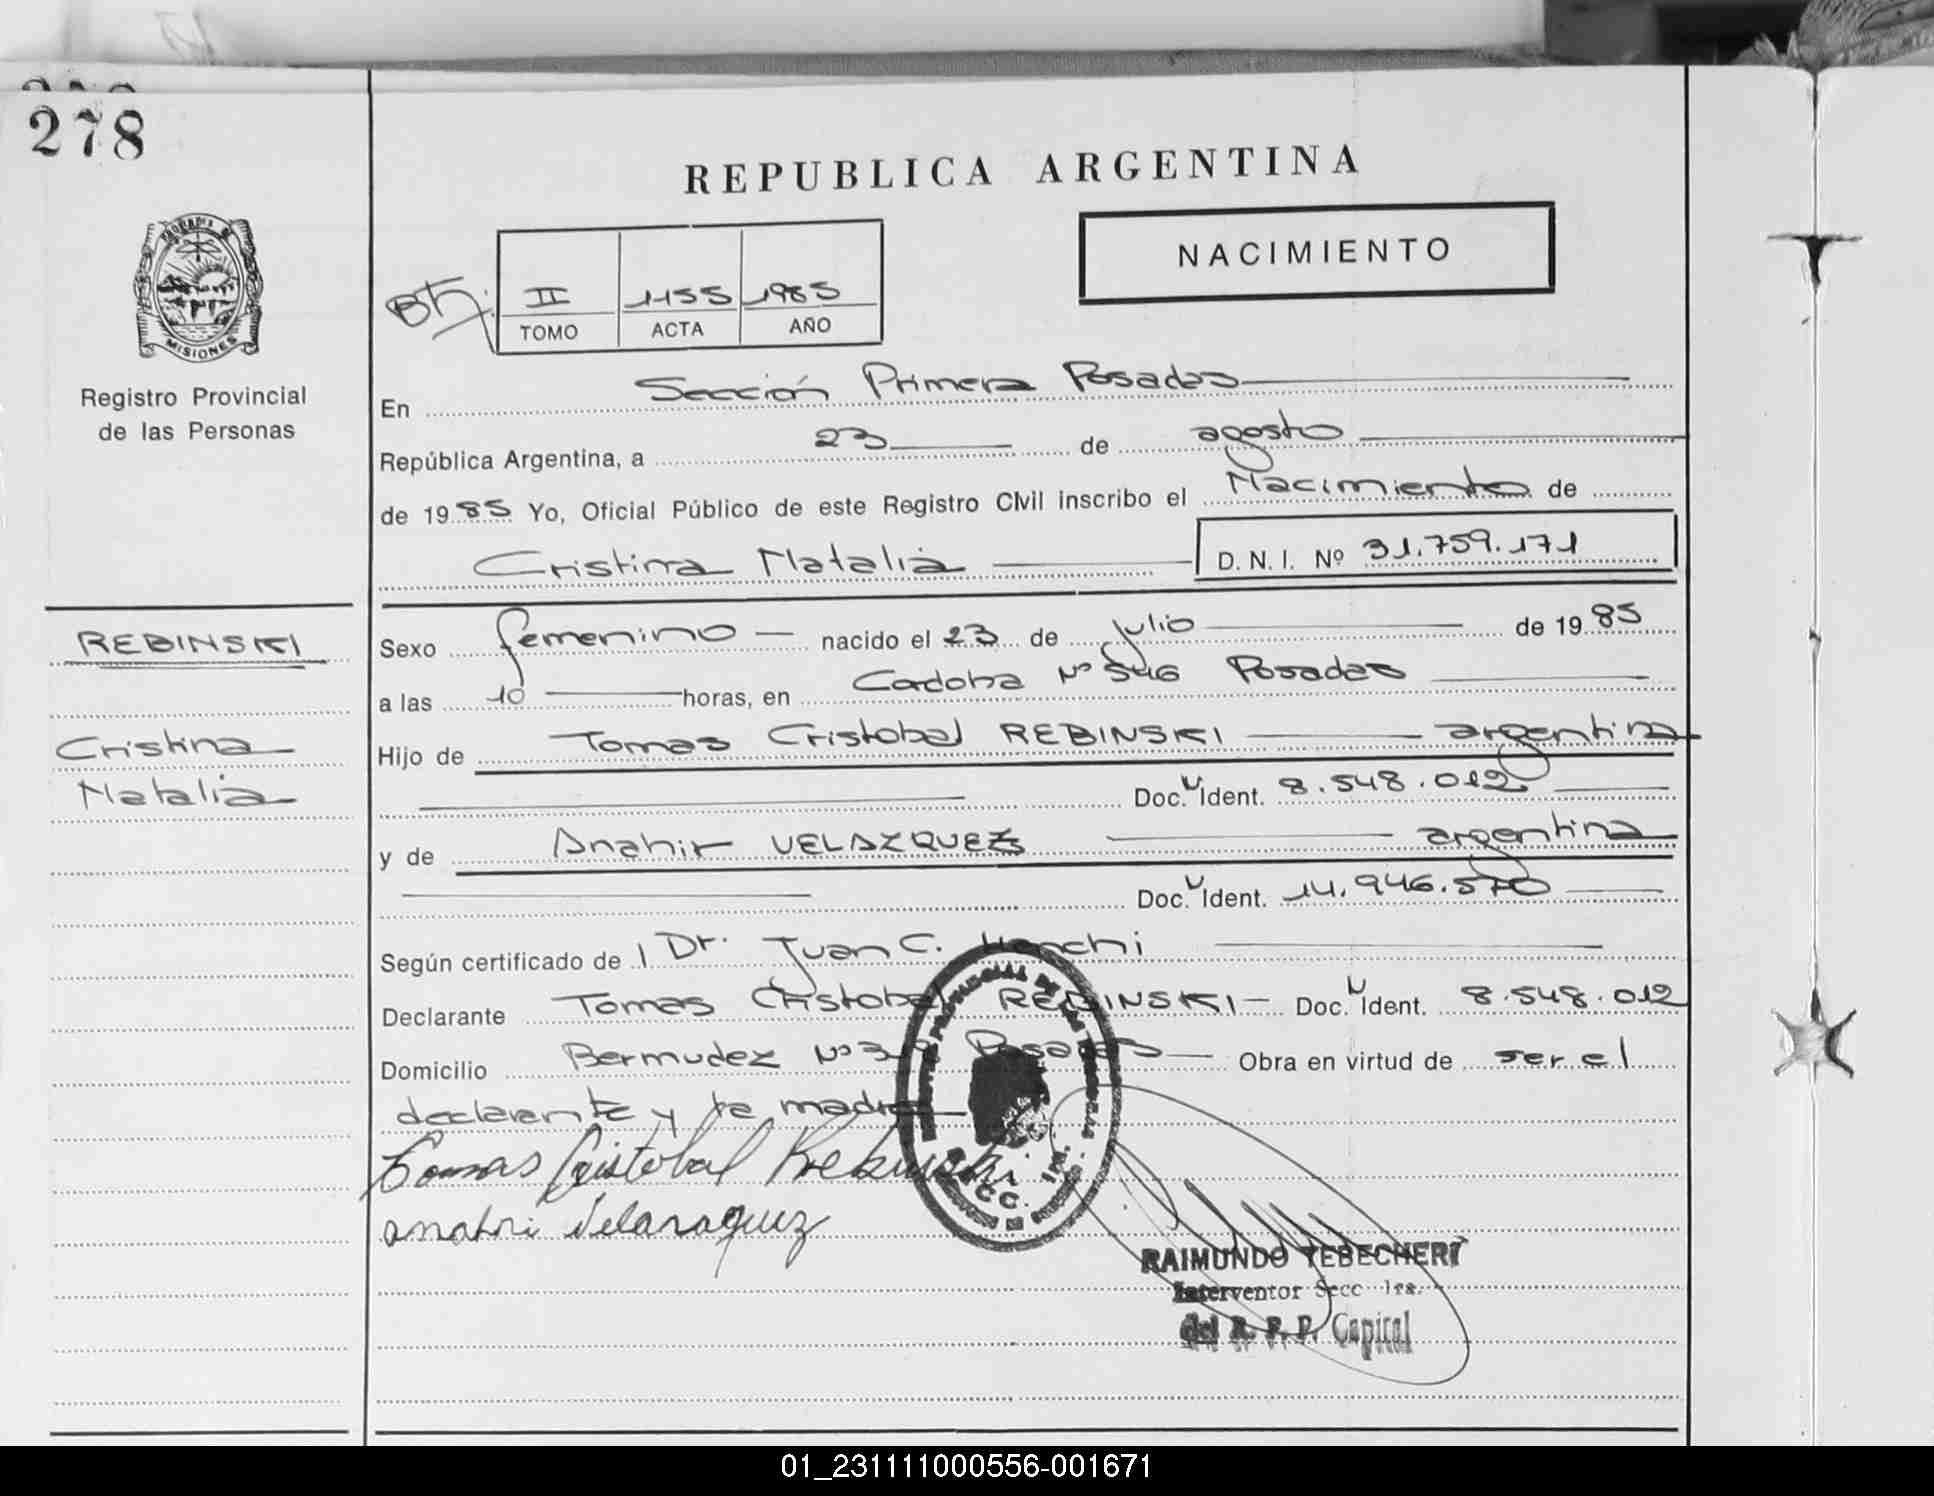 278
REPUBLICA ARGENTINA
NACIMIENTO
II 1155 1985
TOMO ACTA AÑO
PROVINCIA DE
MISIONES
Registro Provincial
de las Personas
En Sección Primera Posadas
República Argentina, a 23 de agosto
de 1985 Yo, Oficial Público de este Registro Civil inscribo el Nacimiento de
Cristina Natalia D. N. I. Nº 31.759.171
REBINSKI
Cristina
Natalia
Sexo femenino nacido el 23 de julio de 1985
a las 10 horas, en Cadoba Nº 546 Posadas
Hijo de Tomas Cristobal REBINSKI argentina
Doc. Ident. 8.548.012
y de Anahir VELAZQUEZ argentina
Doc. Ident. 14.946.570
Según certificado de l Dr. Juan C.
Declarante Tomas Cristobal REBINSKI Doc. Ident. 8.548.012
Domicilio Bermudez Nº Posadas Obra en virtud de ser el
declarante y la madre
Tomas Cristobal Rebinski
RAIMUNDO TEBECHERI
Interventor Secc 1ra.
del R. P. P. Capital
01_231111000556-001671